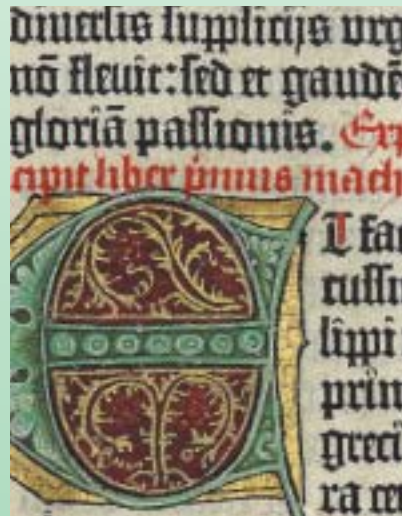 diuersis suppliciis urg
nō fleuit: sed et gaudē
gloriā passionis. Exp
cipit liber p̄mus mach
Et fac
cussit
lippi
prim
greci
ra ce